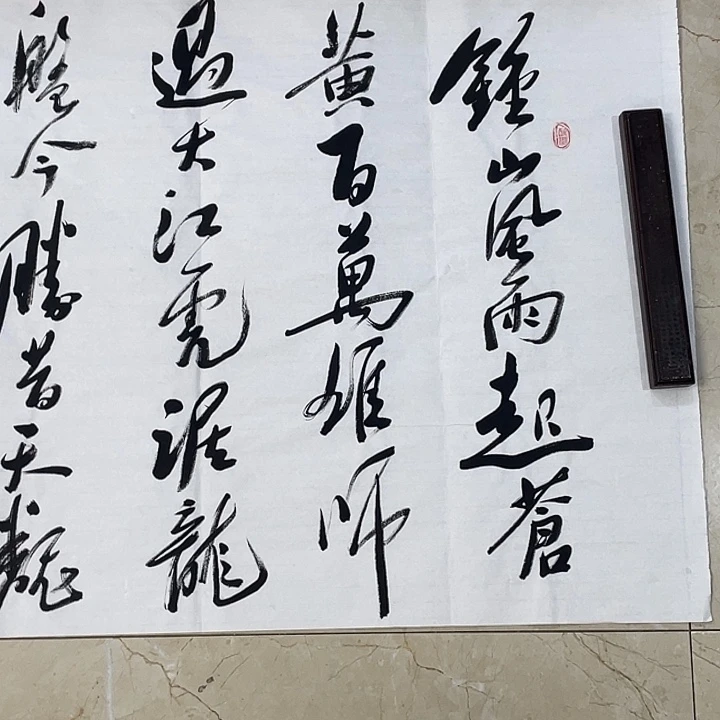 鍾山風雨起蒼
黃百萬雄師
過大江虎踞龍
盤今勝昔天